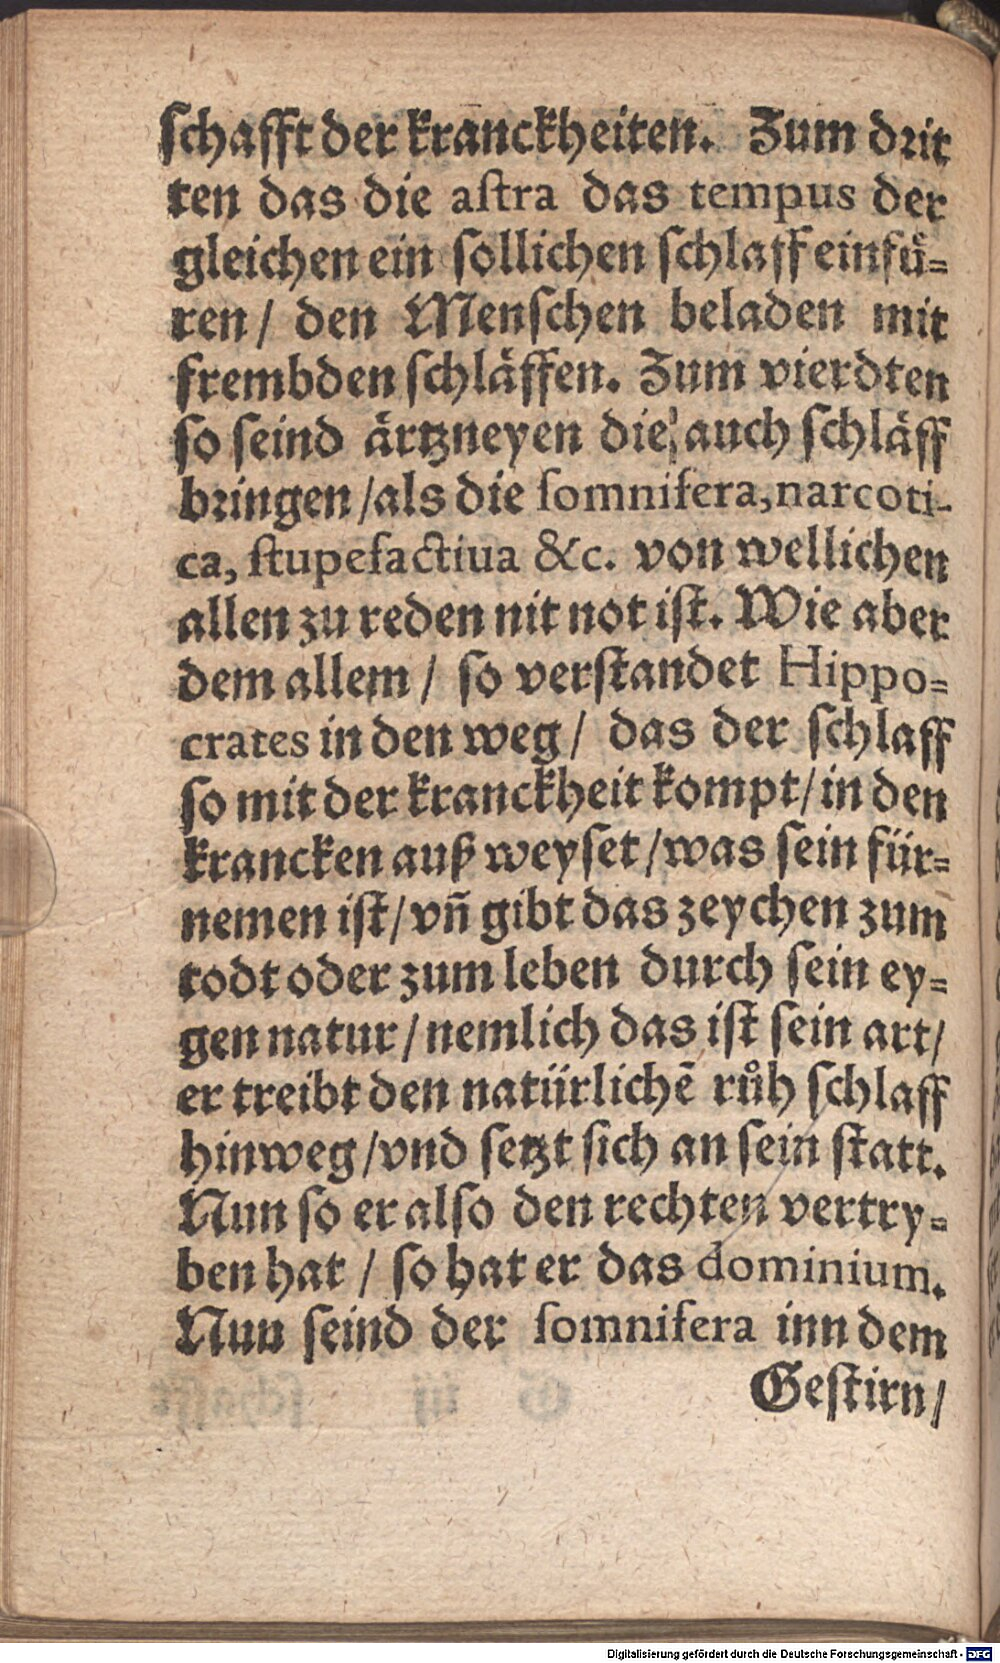 schafft der kranckheiten. Zum drit
ten das die astra das tempus der
gleichen ein sollichen schlaff einfuͤ-
ren / den Menschen beladen mit
frembden schlaͤffen. Zum vierdten
so seind aͤrtzneyen die auch schlaͤff
bringen / als die somnifera, narcoti-
ca, stupefactiua &c. von wellichen
allen zu reden nit not ist. Wie aber
dem allem / so verstandet Hippo-
crates in den weg / das der schlaff
so mit der kranckheit kompt / in den
krancken auß weyset / was sein für-
nemen ist / vñ gibt das zeychen zum
todt oder zum leben durch sein ey-
gen natur / nemlich das ist sein art /
er treibt den natürlichē růh schlaff
hinweg / vnd setzt sich an sein statt.
Nun so er also den rechten vertry-
ben hat / so hat er das dominium.
Nun seind der somnifera inn dem
Gestirn /
Digitalisierung gefördert durch die Deutsche Forschungsgemeinschaft - DFG